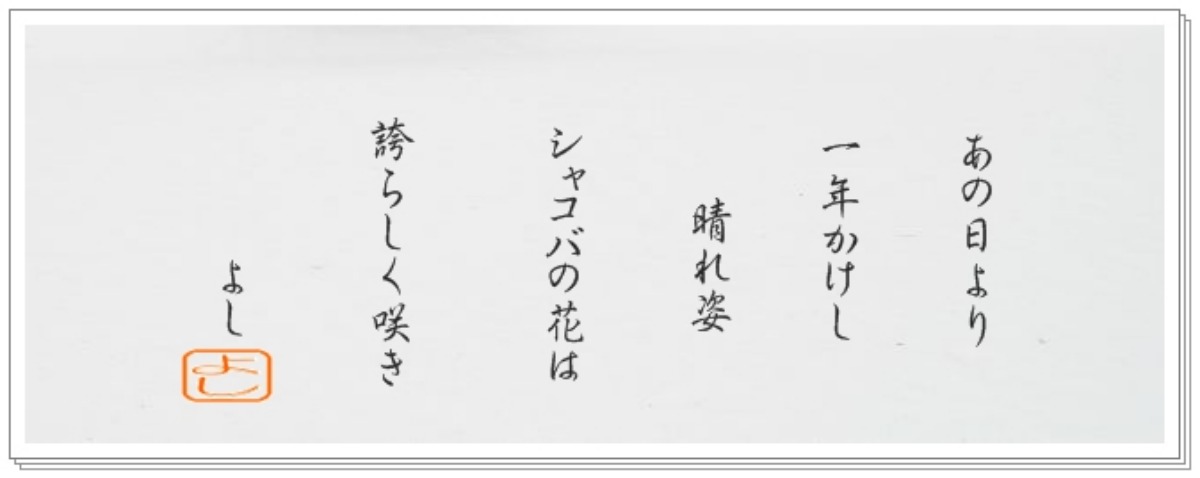 あの日より
一年かけし
晴れ姿
シャコバの花は
誇らしく咲き
よし
よし